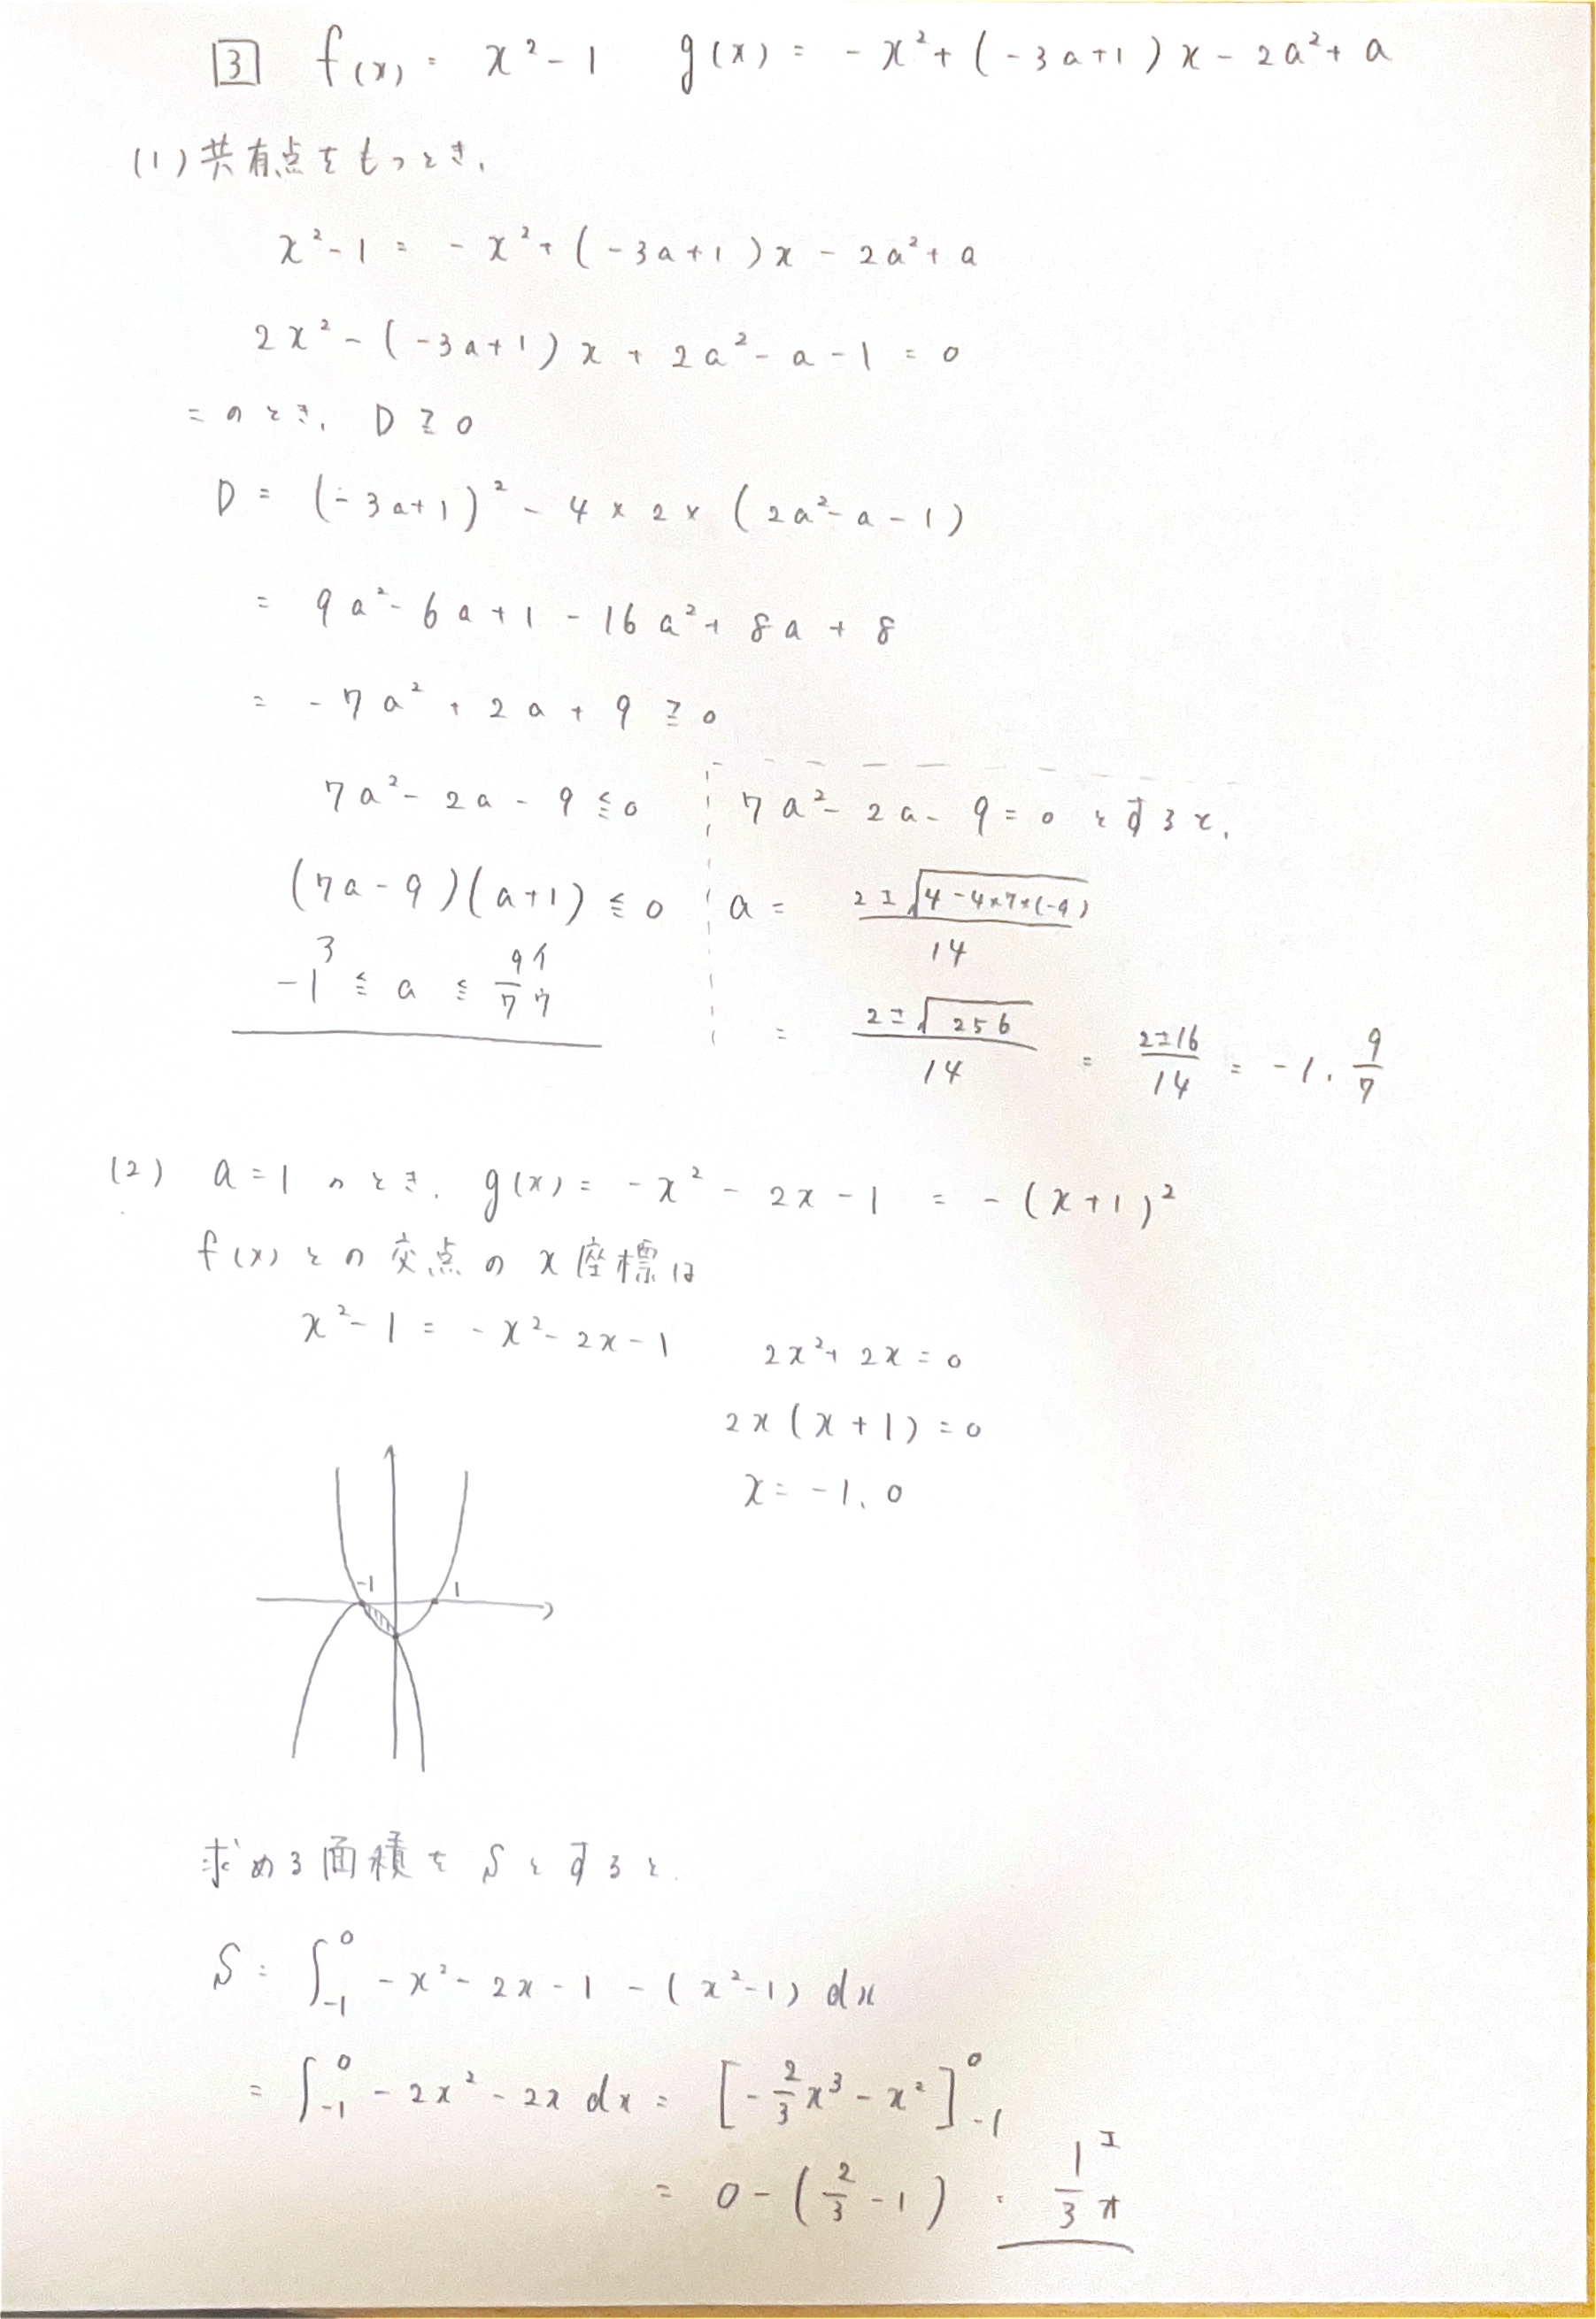 3 f(x) = x² - 1 g(x) = - x² + ( - 3a + 1 ) x - 2a² + a
(1) 共有点をもつとき、
x² - 1 = - x² + ( - 3a + 1 ) x - 2a² + a
2x² - ( - 3a + 1 ) x + 2a² - a - 1 = 0
このとき、 D ≧ 0
D = ( - 3a + 1 )² - 4 × 2 × ( 2a² - a - 1 )
= 9a² - 6a + 1 - 16a² + 8a + 8
= - 7a² + 2a + 9 ≧ 0
7a² - 2a - 9 ≦ 0
(7a - 9)(a + 1) ≦ 0
-1 ア ≦ a ≦ 9/7 イ ウ
7a² - 2a - 9 = 0 とすると、
a = (2 ± √(4 - 4×7×(-9))) / 14
= (2 ± √256) / 14 = (2 ± 16) / 14 = -1, 9/7
(2) a = 1 のとき、 g(x) = - x² - 2x - 1 = - (x + 1)²
f(x) との交点の x 座標は
x² - 1 = - x² - 2x - 1 2x² + 2x = 0
2x ( x + 1 ) = 0
x = -1, 0
-1 1
求める面積を S とすると、
S = ∫₋₁⁰ - x² - 2x - 1 - ( x² - 1 ) dx
= ∫₋₁⁰ - 2x² - 2x dx = [ - 2/3 x³ - x² ]₋₁⁰
= 0 - ( 2/3 - 1 ) = 1/3 エ オ